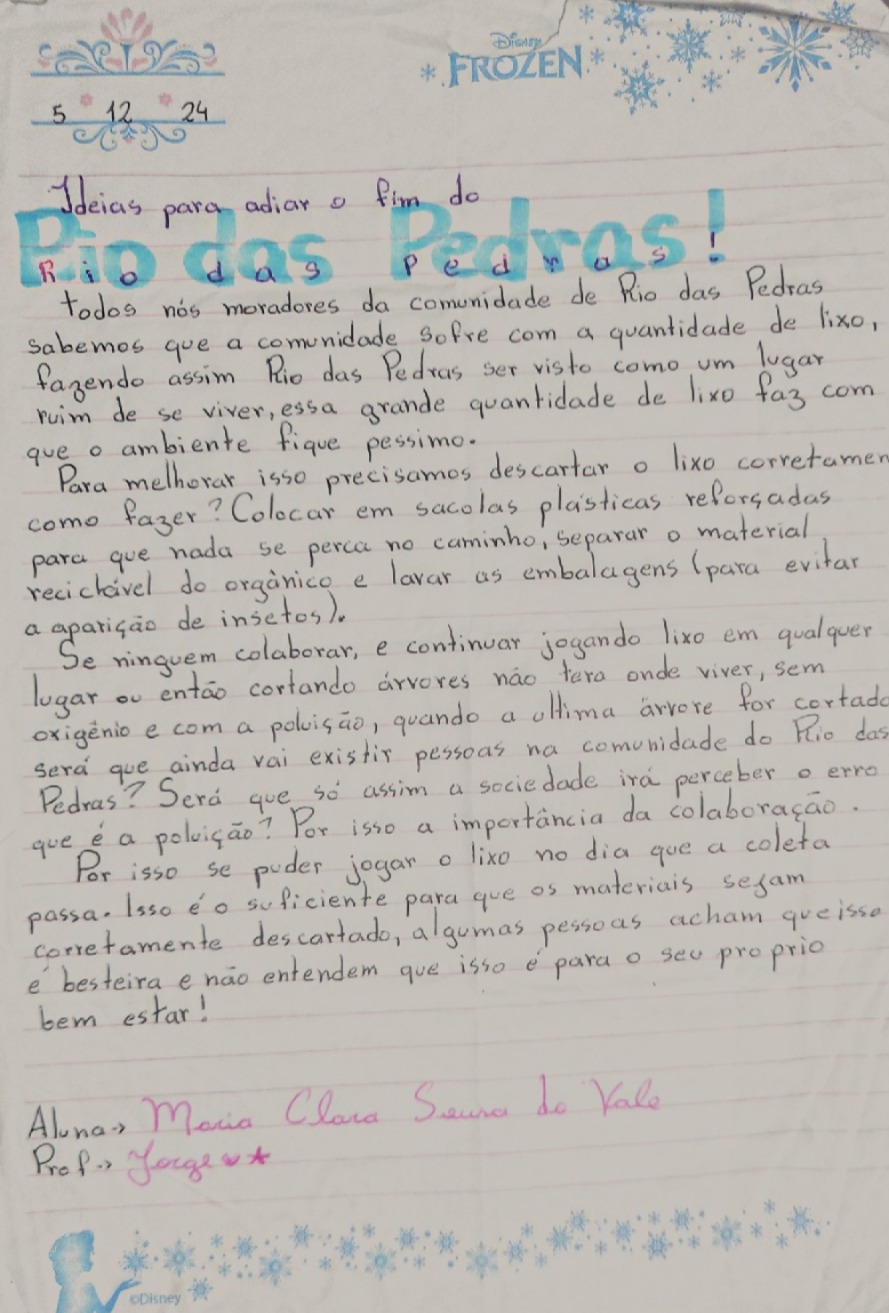 Disney
FROZEN
5 12 24
Ideias para adiar o fim do
Rio das Pedras!
todos nós moradores da comunidade de Rio das Pedras
sabemos que a comunidade sofre com a quantidade de lixo,
fazendo assim Rio das Pedras ser visto como um lugar
ruim de se viver, essa grande quantidade de lixo faz com
que o ambiente fique pessimo.
Para melhorar isso precisamos descartar o lixo corretamen
como fazer? Colocar em sacolas plásticas reforsadas
para que nada se perca no caminho, separar o material
reciclável do orgânico e lavar as embalagens (para evitar
a aparição de insetos).
Se ninguem colaborar, e continuar jogando lixo em qualquer
lugar ou então cortando árvores não tera onde viver, sem
oxigênio e com a poluisão, quando a ultima árvore for cortado
será que ainda vai existir pessoas na comunidade do Rio das
Pedras? Será que só assim a sociedade irá perceber o erro
que é a poluição? Por isso a importância da colaboração.
Por isso se puder jogar o lixo no dia que a coleta
passa. Isso é o suficiente para que os materiais sejam
corretamente descartado, algumas pessoas acham que isso
é besteira e não entendem que isso é para o seu proprio
bem estar!
Aluna→ Maria Clara do Vale
Prof→ Jorge
©Disney